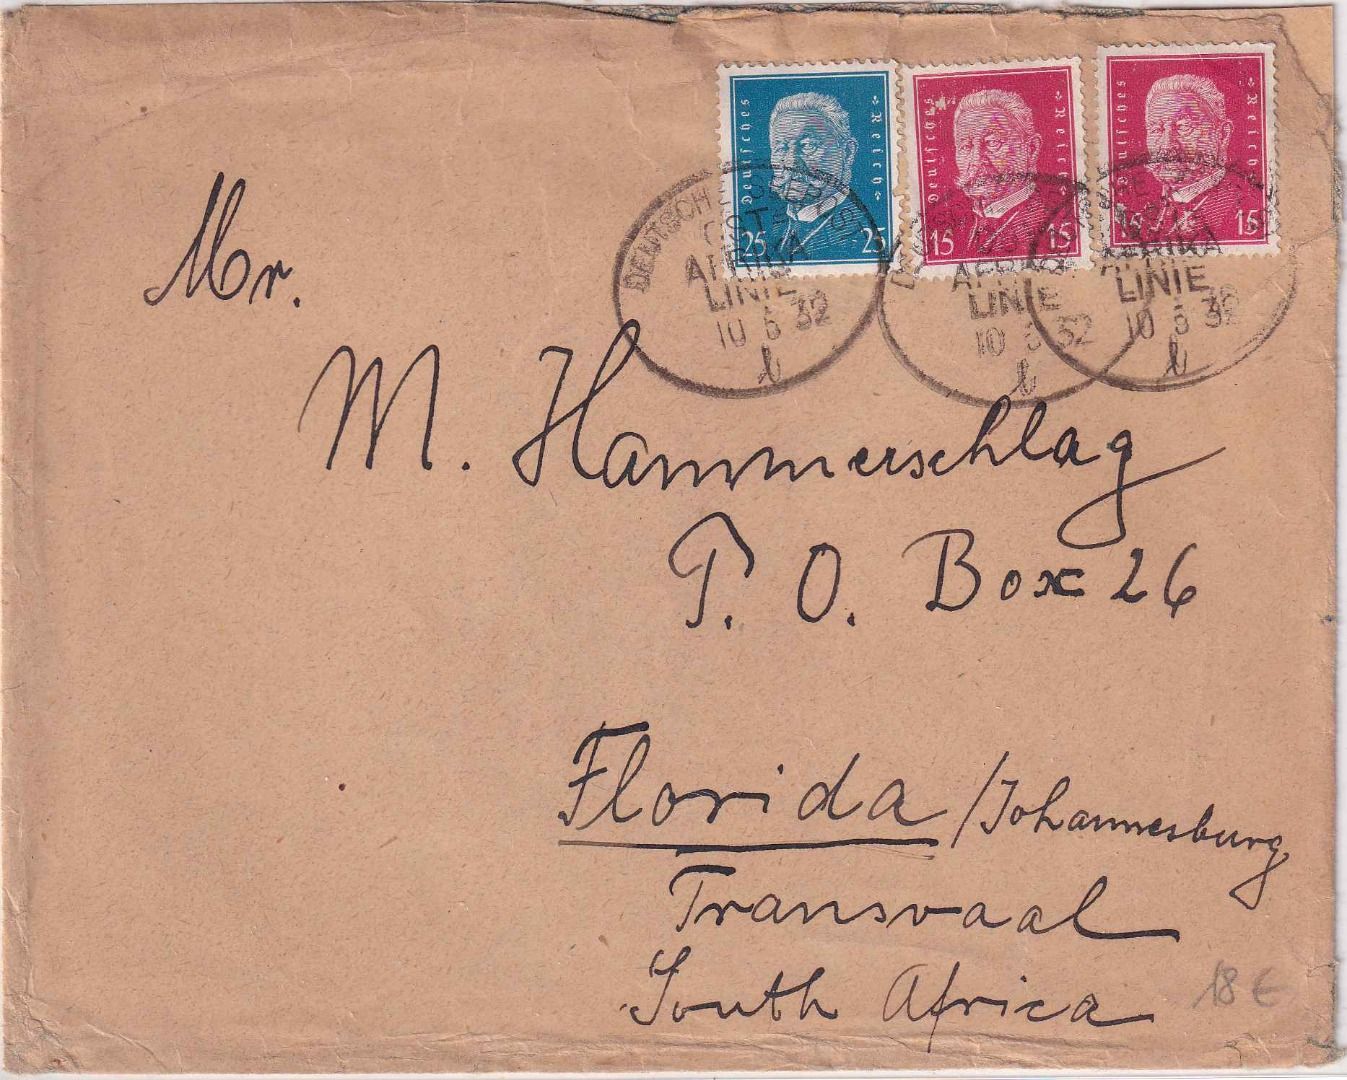 Deutsches Reich
25 25
Deutsches Reich
15 15
Deutsches Reich
15 15
DEUTSCHE SEEPOST
OST-
AFRIKA
LINIE
10 5 32
b
OST-
AFRIKA
LINIE
10 5 32
b
AFRIKA
LINIE
10 5 32
b
Mr.
M. Hammerschlag
P. O. Box 26
Florida / Johannesburg
Transvaal
South Africa
18 €